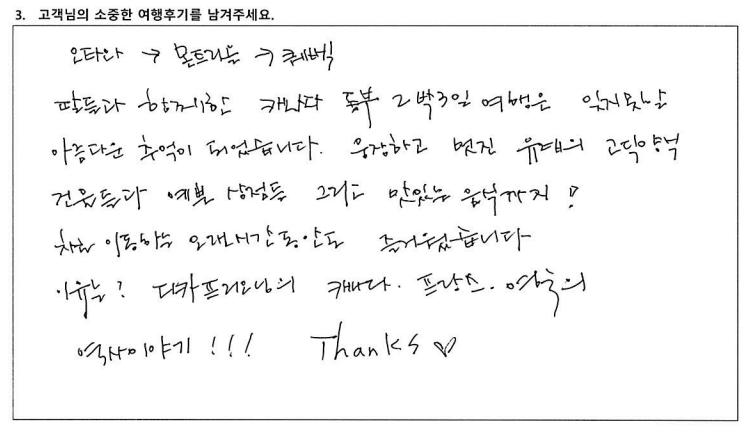 3. 고객님의 소중한 여행후기를 남겨주세요.
오타와 → 몬트리올 → 퀘벡
딸들과 함께한 캐나다 동부 2박3일 여행은 잊지못날
아름다운 추억이 되었습니다. 웅장하고 멋진 유럽의 고딕양식
건물들과 예쁜 상점들 그리고 맛있는 음식까지!
차로 이동하는 오래시간동안도 즐거웠습니다
이유는? 디카프리오님의 캐나다. 프랑스. 영국의
역사이야기!!! Thanks ♡